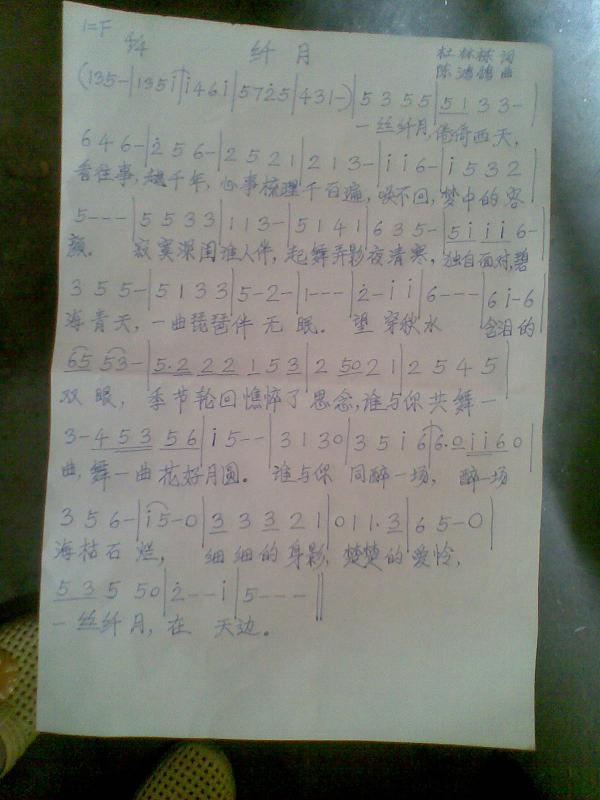 1=F 4/4 纤月 杜林栋 词
陈鸿鸽 曲
(135-|135i|i46i|5725|431-)|5355|5133-|
一丝纤月,倚倚西天,
646-|256-|2521|213-|ii6-|i532
舍往事,越千年,心事梳理千百遍,唤不回,梦中的容
5---|5533|113-|5141|635-|5iii6-
颜。 寂寞深闺谁人伴,起舞弄影夜清寒,独自面对,碧
355-|5133|5-2-|1---|2-ii|6---|6i-6
海青天,一曲琵琶伴无眠。望穿秋水 含泪的
65 53-|5.222153|25021|2545|
双眼, 季节轮回憔悴了思念,谁与你共舞一
3-45356|i5--|3130|35i6|6.0ii60
曲,舞一曲花好月圆。 谁与你同醉一场, 醉一场
356-|i5-0|33321|011.3|65-0|
海枯石烂, 细细的身影,楚楚的爱怜,
53550|2--i|5---||
一丝纤月,在 天边。